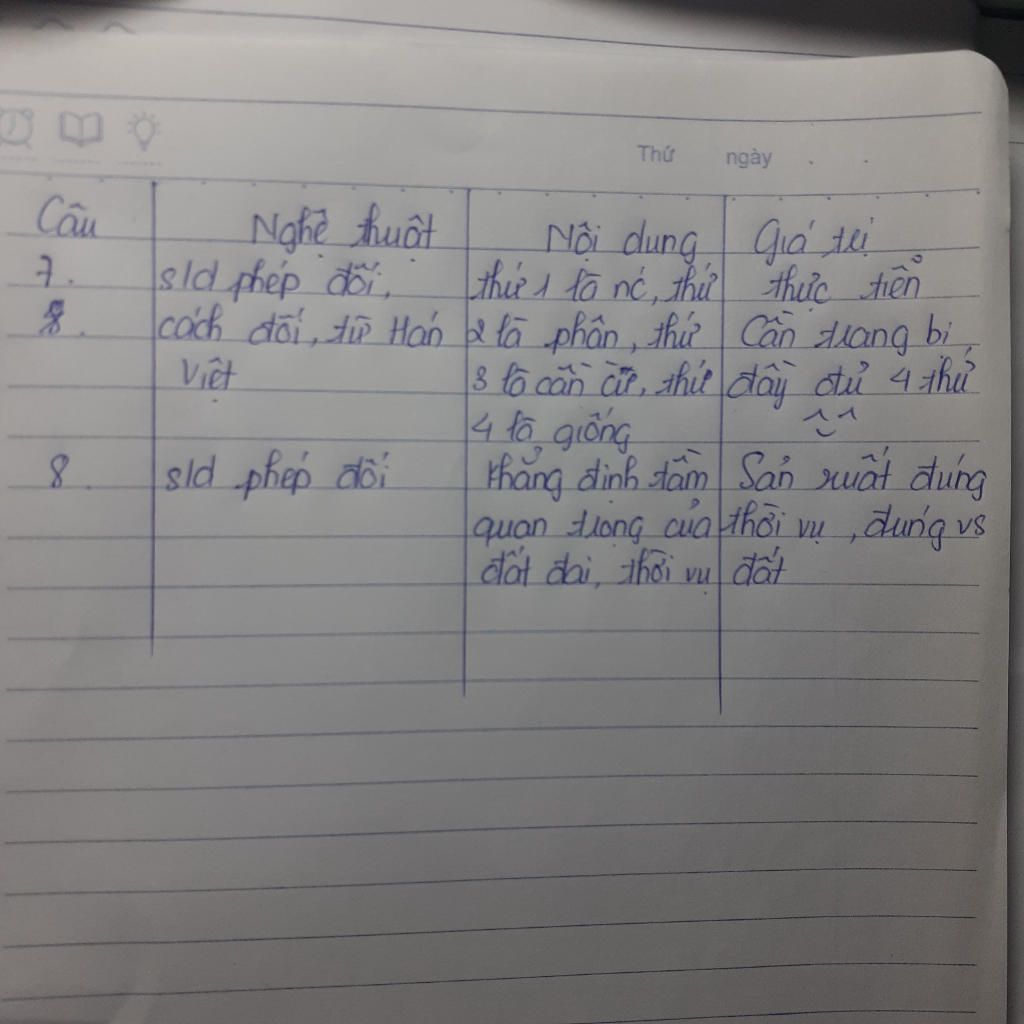 Thứ ngày
Câu Nghệ thuật Nội dung Giá trị
7. sld phép đối, thứ 1 là nć, thứ thực tiển
8. cách đối, từ Hán 2 là phân, thứ Cần trang bị
Việt 3 là cần cừ, thứ đầy đủ 4 thứ
4 là giống ^_^
8. sld phép đối khẳng định tầm Sản xuất đúng
quan trọng của thời vụ, đúng vs
đất đai, thời vụ đất